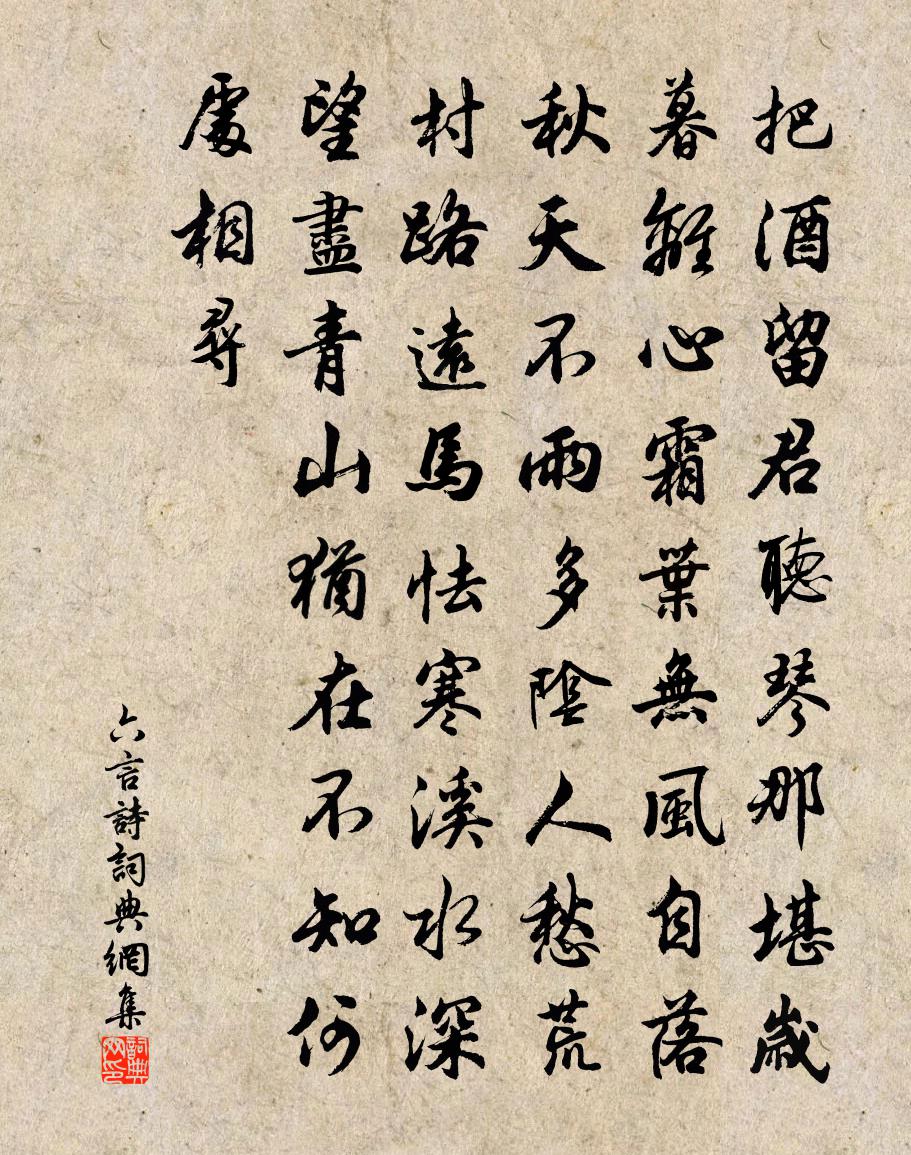 把酒留君聽琴那堪歲
暮離心霜葉無風自落
秋天不雨多陰人愁荒
村路遠馬怯寒溪水深
望盡青山猶在不知何
處相尋
六言詩詞典網集
詞典网印